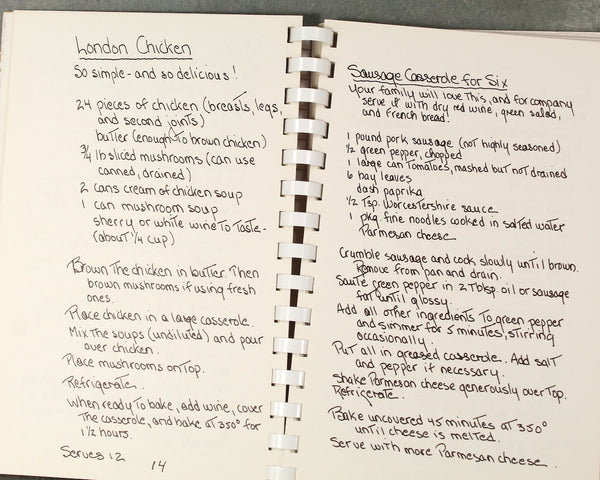 London Chicken
So simple - and so delicious!
24 pieces of chicken (breasts, legs,
and second joints)
butter (enough to brown chicken)
3/4 lb sliced mushrooms (can use
canned, drained)
2 cans cream of chicken soup
1 can mushroom soup
sherry or white wine to taste -
(about 1/4 cup)
Brown the chicken in butter. Then
brown mushrooms if using fresh
ones.
Place chicken in a large casserole.
Mix the soups (undiluted) and pour
over chicken.
Place mushrooms on top.
Refrigerate.
When ready to bake, add wine, cover
the casserole, and bake at 350° for
1 1/2 hours.
Serves 12
14
Sausage Casserole for Six
Your family will love this, and for company
serve it with dry red wine, green salad,
and French bread!
1 pound pork sausage (not highly seasoned)
1/2 green pepper, chopped
1 large can tomatoes, mashed but not drained
6 bay leaves
dash paprika
1/2 tsp. Worcestershire sauce
1 pkg. fine noodles cooked in salted water
Parmesan cheese
Crumble sausage and cook slowly until brown.
Remove from pan and drain.
Sauté green pepper in 2 Tblsp. oil or sausage
fat until glossy.
Add all other ingredients to green pepper
and simmer for 5 minutes, stirring
occasionally.
Put all in greased casserole. Add salt
and pepper if necessary.
Shake Parmesan cheese generously over top.
Refrigerate.
Bake uncovered 45 minutes at 350°
until cheese is melted.
Serve with more Parmesan cheese.